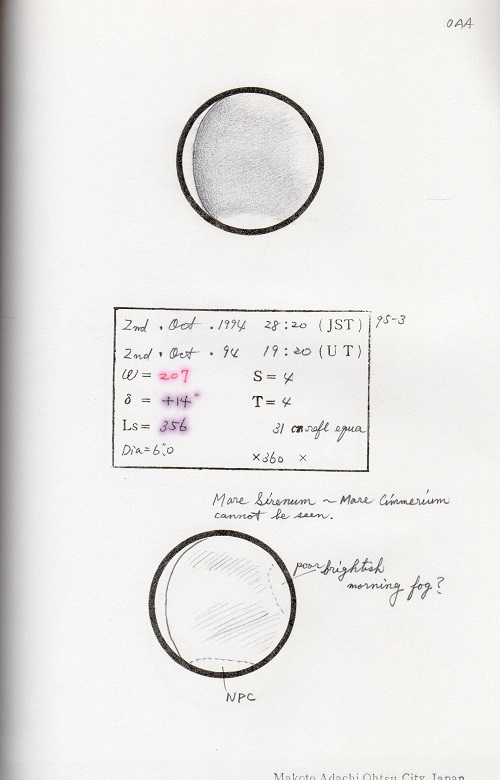 OAA
2nd . Oct . 1994 28:20 (JST) 95-3
2nd . Oct . 94 19:20 (U T)
ω = 207 S = 4
δ = +14° T = 4
Ls = 356 31 cm refl equa
Dia = 6".0 ×360 ×
Mare Sirenum ~ Mare Cimmerium
cannot be seen.
poor brightish
morning fog?
NPC
Makoto Adachi Ohtsu City, Japan